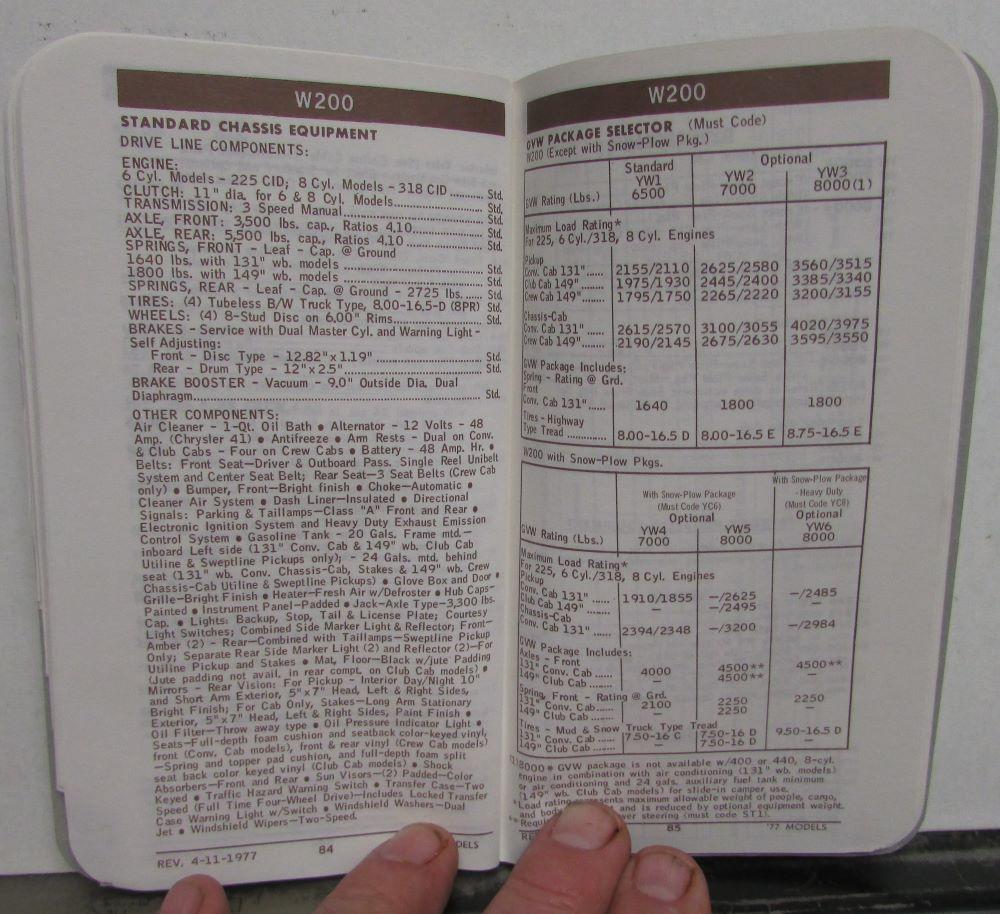 W200
STANDARD CHASSIS EQUIPMENT
DRIVE LINE COMPONENTS:
ENGINE:
6 Cyl. Models - 225 CID; 8 Cyl. Models - 318 CID ......... Std.
CLUTCH: 11" dia. for 6 & 8 Cyl. Models................. Std.
TRANSMISSION: 3 Speed Manual......................... Std.
AXLE, FRONT: 3,500 lbs. cap., Ratios 4.10............... Std.
AXLE, REAR: 5,500 lbs. cap., Ratios 4.10 ................ Std.
SPRINGS, FRONT - Leaf - Cap. @ Ground
1640 lbs. with 131" wb. models ........................ Std.
1800 lbs. with 149" wb. models ........................ Std.
SPRINGS, REAR - Leaf - Cap. @ Ground - 2725 lbs. ...... Std.
TIRES: (4) Tubeless B/W Truck Type, 8.00-16.5-D (8PR) Std.
WHEELS: (4) 8-Stud Disc on 6.00" Rims................. Std.
BRAKES - Service with Dual Master Cyl. and Warning Light -
Self Adjusting:
Front - Disc Type - 12.82" x 1.19" ........................ Std.
Rear - Drum Type - 12" x 2.5" ........................... Std.
BRAKE BOOSTER - Vacuum - 9.0" Outside Dia. Dual
Diaphragm............................................. Std.
OTHER COMPONENTS:
Air Cleaner - 1-Qt. Oil Bath • Alternator - 12 Volts - 48
Amp. (Chrysler 41) • Antifreeze • Arm Rests - Dual on Conv.
& Club Cabs - Four on Crew Cabs • Battery - 48 Amp. Hr. •
Belts: Front Seat—Driver & Outboard Pass. Single Reel Unibelt
System and Center Seat Belt; Rear Seat—3 Seat Belts (Crew Cab
only) • Bumper, Front—Bright finish • Choke—Automatic •
Cleaner Air System • Dash Liner—Insulated • Directional
Signals: Parking & Taillamps—Class "A" Front and Rear •
Electronic Ignition System and Heavy Duty Exhaust Emission
Control System • Gasoline Tank - 20 Gals. Frame mtd.—
inboard Left side (131" Conv. Cab & 149" wb. Club Cab
Utiline & Sweptline Pickups only); - 24 Gals. mtd. behind
seat (131" wb. Conv. Chassis-Cab, Stakes & 149" wb. Crew
Chassis-Cab Utiline & Sweptline Pickups) • Glove Box and Door •
Grille—Bright Finish • Heater—Fresh Air w/Defroster • Hub Caps—
Painted • Instrument Panel—Padded • Jack—Axle Type—3,300 lbs.
Cap. • Lights: Backup, Stop, Tail & License Plate; Courtesy
Light Switches; Combined Side Marker Light & Reflector; Front—
Amber (2) - Rear—Combined with Taillamps—Sweptline Pickup
Only; Separate Rear Side Marker Light (2) and Reflector (2)—For
Utiline Pickup and Stakes • Mat, Floor—Black w/jute Padding
(Jute padding not avail. in rear compt. on Club Cab models) •
Mirrors - Rear Vision: For Pickup - Interior Day/Night 10"
and Short Arm Exterior, 5" x 7" Head, Left & Right Sides,
Bright Finish; For Cab Only, Stakes—Long Arm Stationary
Exterior, 5" x 7" Head, Left & Right Sides, Paint Finish •
Oil Filter—Throw away type • Oil Pressure Indicator Light •
Seats—Full-depth foam cushion and seatback color-keyed vinyl,
front (Conv. Cab models), front & rear vinyl (Crew Cab models)
—Spring and topper pad cushion, and full-depth foam split
seat back color keyed vinyl (Club Cab models) • Shock
Absorbers—Front and Rear • Sun Visors—(2) Padded—Color
Keyed • Traffic Hazard Warning Switch • Transfer Case—Two
Speed (Full Time Four-Wheel Drive)—Includes Locked Transfer
Case Warning Light w/Switch • Windshield Washers—Dual
Jet • Windshield Wipers—Two-Speed.
REV. 4-11-1977 84 DELS
W200
GVW PACKAGE SELECTOR (Must Code)
W200 (Except with Snow-Plow Pkg.)
Standard Optional
YW1 YW2 YW3
GVW Rating (Lbs.) 6500 7000 8000(1)
Maximum Load Rating*
For 225, 6 Cyl./318, 8 Cyl. Engines
Pickup
Conv. Cab 131"...... 2155/2110 2625/2580 3560/3515
Club Cab 149"...... 1975/1930 2445/2400 3385/3340
Crew Cab 149"...... 1795/1750 2265/2220 3200/3155
Chassis-Cab
Conv. Cab 131" ...... 2615/2570 3100/3055 4020/3975
Crew Cab 149"...... 2190/2145 2675/2630 3595/3550
GVW Package Includes:
Spring - Rating @ Grd.
Front
Conv. Cab 131"...... 1640 1800 1800
Tires - Highway
Type Tread ............ 8.00-16.5 D 8.00-16.5 E 8.75-16.5 E
W200 with Snow-Plow Pkgs.
With Snow-Plow Package (Must Code YC6) Optional With Snow-Plow Package - Heavy Duty (Must Code YC8) Optional
YW4 YW5 YW6
GVW Rating (Lbs.) 7000 8000 8000
Maximum Load Rating*
For 225, 6 Cyl./318, 8 Cyl. Engines
Pickup
Conv. Cab 131" ...... 1910/1855 —/2625 —/2485
Club Cab 149" ...... — —/2495 —
Chassis-Cab
Conv. Cab 131" ...... 2394/2348 —/3200 —/2984
GVW Package Includes:
Axles - Front
131" Conv. Cab ...... 4000 4500** 4500**
149" Club Cab ...... — 4500** —
Spring, Front - Rating @ Grd.
131" Conv. Cab...... 2100 2250 2250
149" Club Cab ...... — 2250 —
Tires - Mud & Snow Truck Type Tread
131" Conv. Cab ...... 7.50-16 C 7.50-16 D 9.50-16.5 D
149" Club Cab ........ — 7.50-16 D —
(1)8000# GVW package is not available w/400 or 440, 8-cyl.
engine in combination with air conditioning (131" wb. models)
or air conditioning and 24 gals. auxiliary fuel tank minimum
(149" wb. Club Cab models) for slide-in camper use.
*Load rating esents maximum allowable weight of people, cargo,
and body and is reduced by optional equipment weight.
**Requi wer steering (must code ST1).
RE 85 '77 MODELS